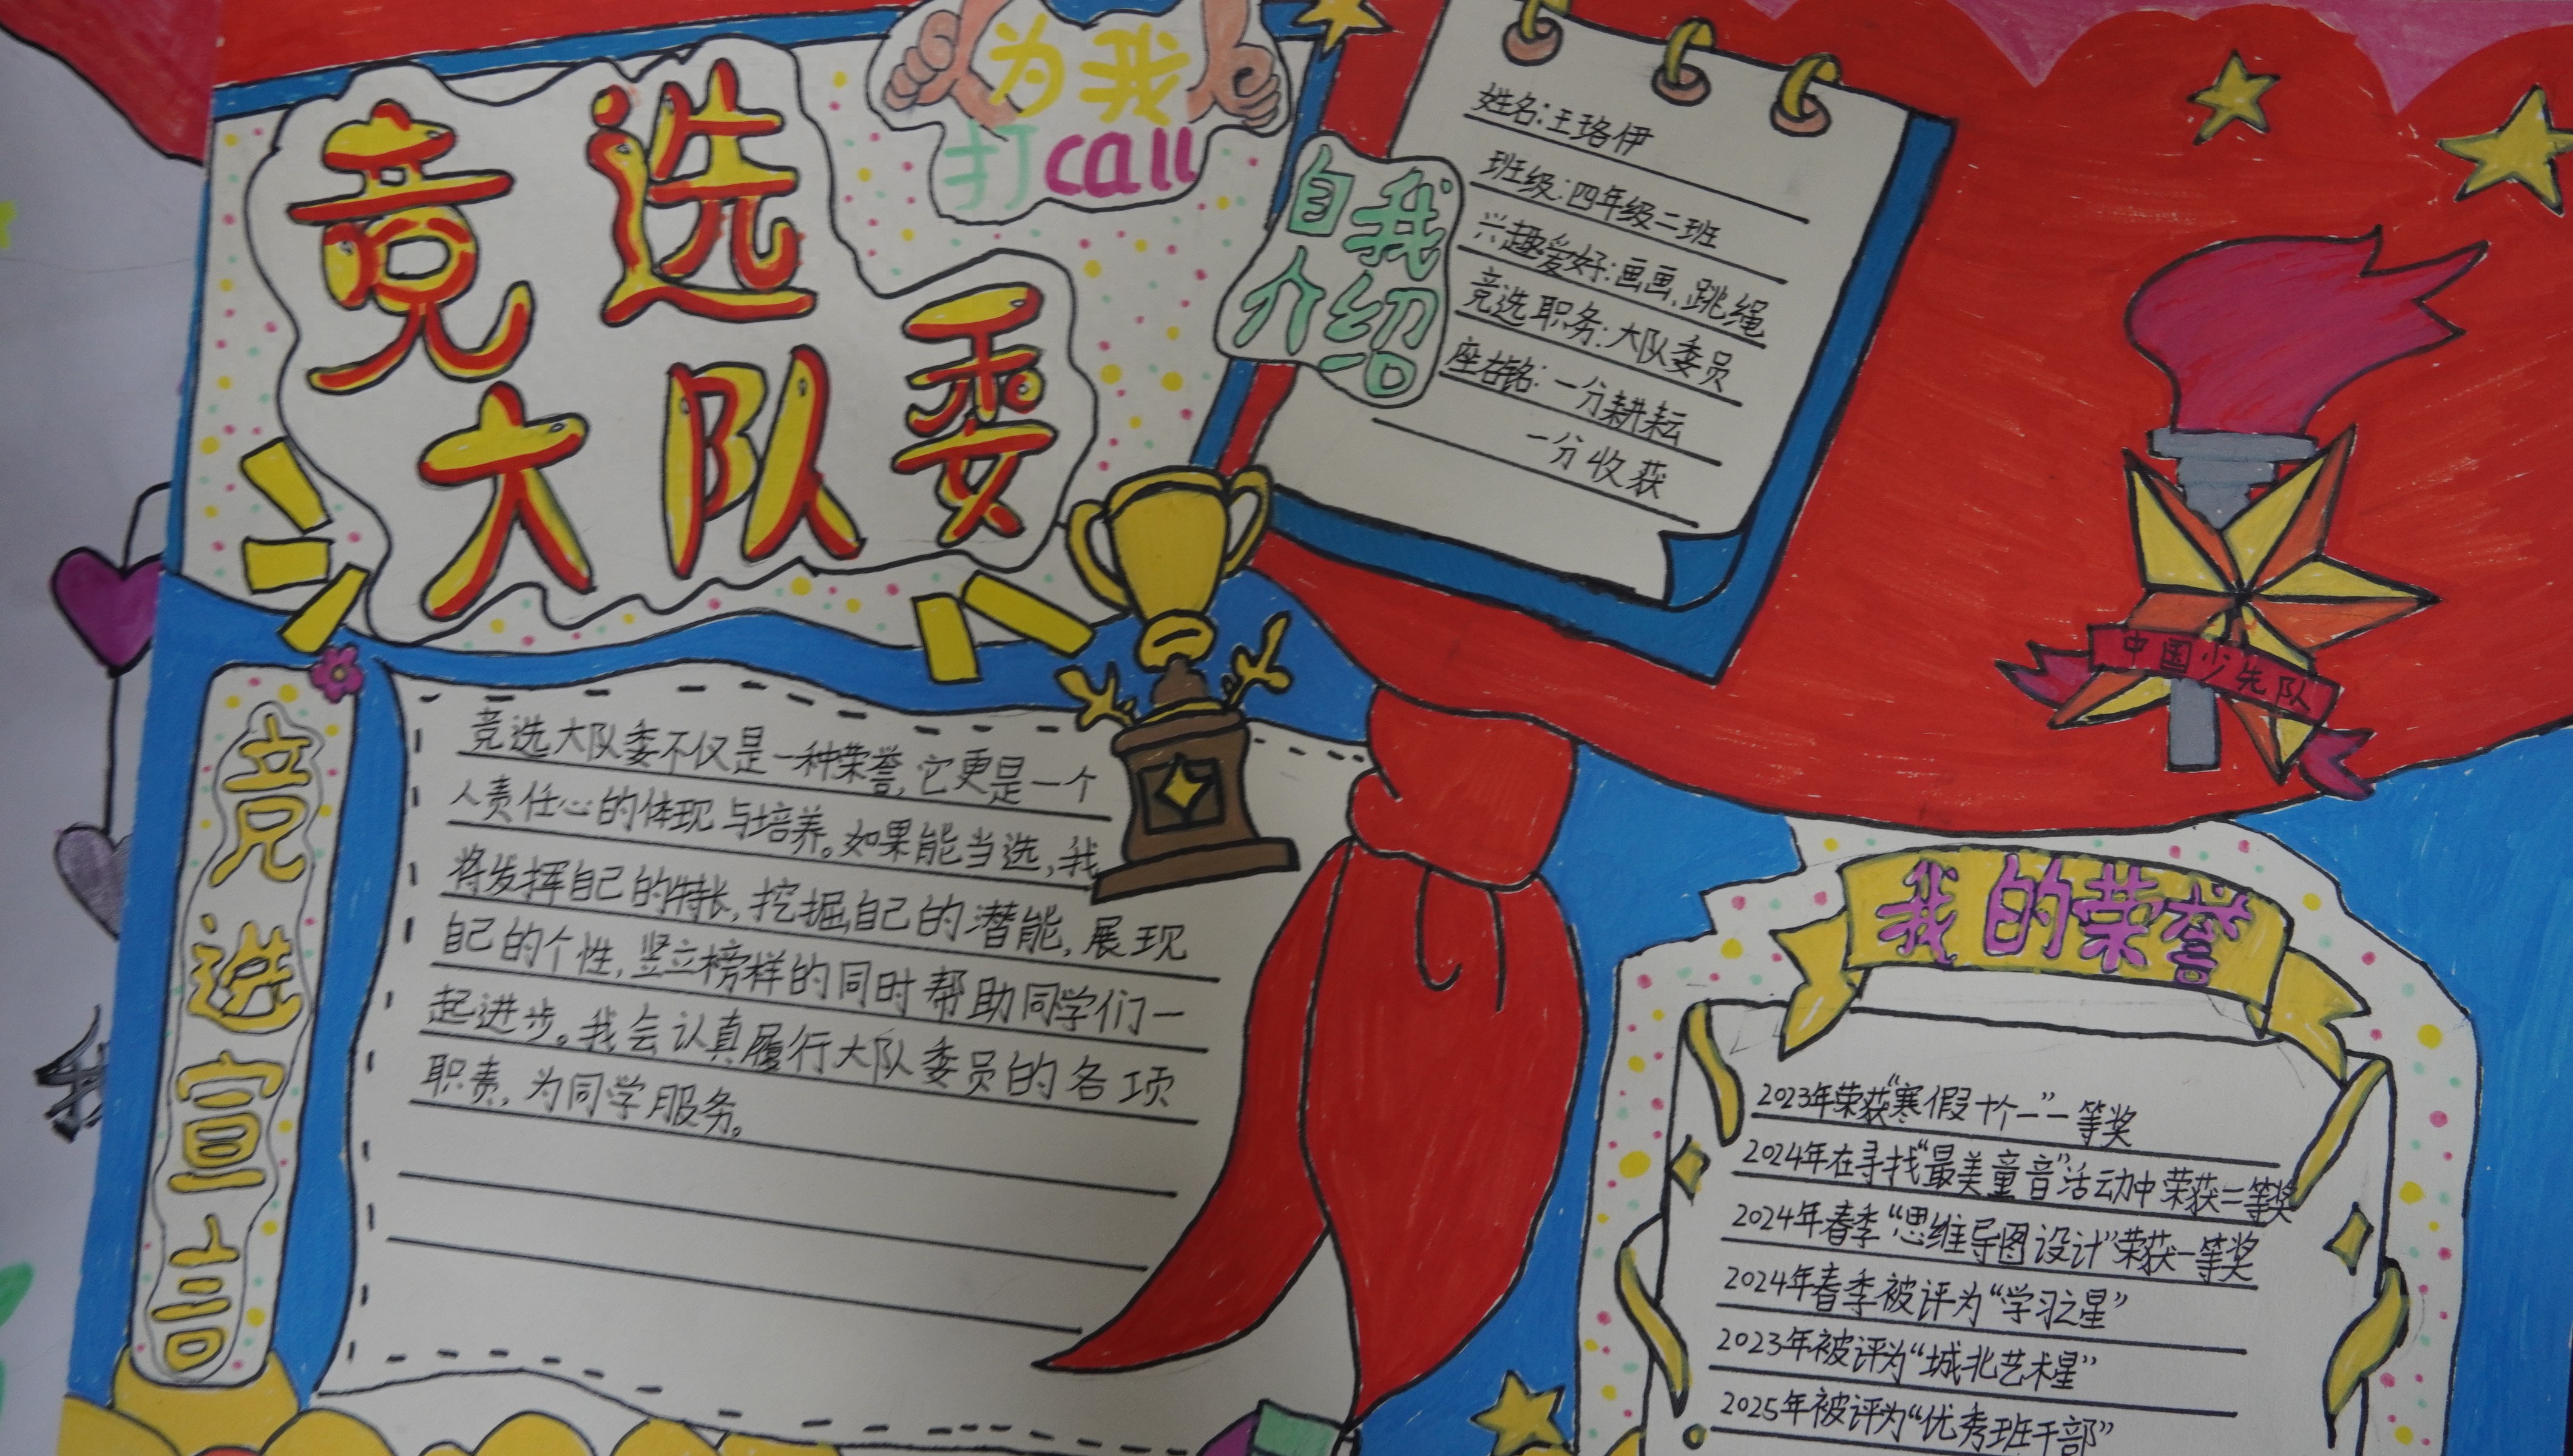 竞选
大队委
为我
打call
自我
介绍
姓名:王珞伊
班级:四年级二班
兴趣爱好:画画、跳绳
竞选职务:大队委员
座右铭:一分耕耘
一分收获
中国少先队
竞选宣言
竞选大队委不仅是一种荣誉,它更是一个
人责任心的体现与培养。如果能当选,我
将发挥自己的特长,挖掘自己的潜能,展现
自己的个性,竖立榜样的同时帮助同学们一
起进步。我会认真履行大队委员的各项
职责,为同学服务。
我的荣誉
2023年荣获“寒假十个一”一等奖
2024年在寻找“最美童音”活动中荣获二等奖
2024年春季“思维导图设计”荣获一等奖
2024年春季被评为“学习之星”
2023年被评为“城北艺术星”
2025年被评为“优秀班干部”